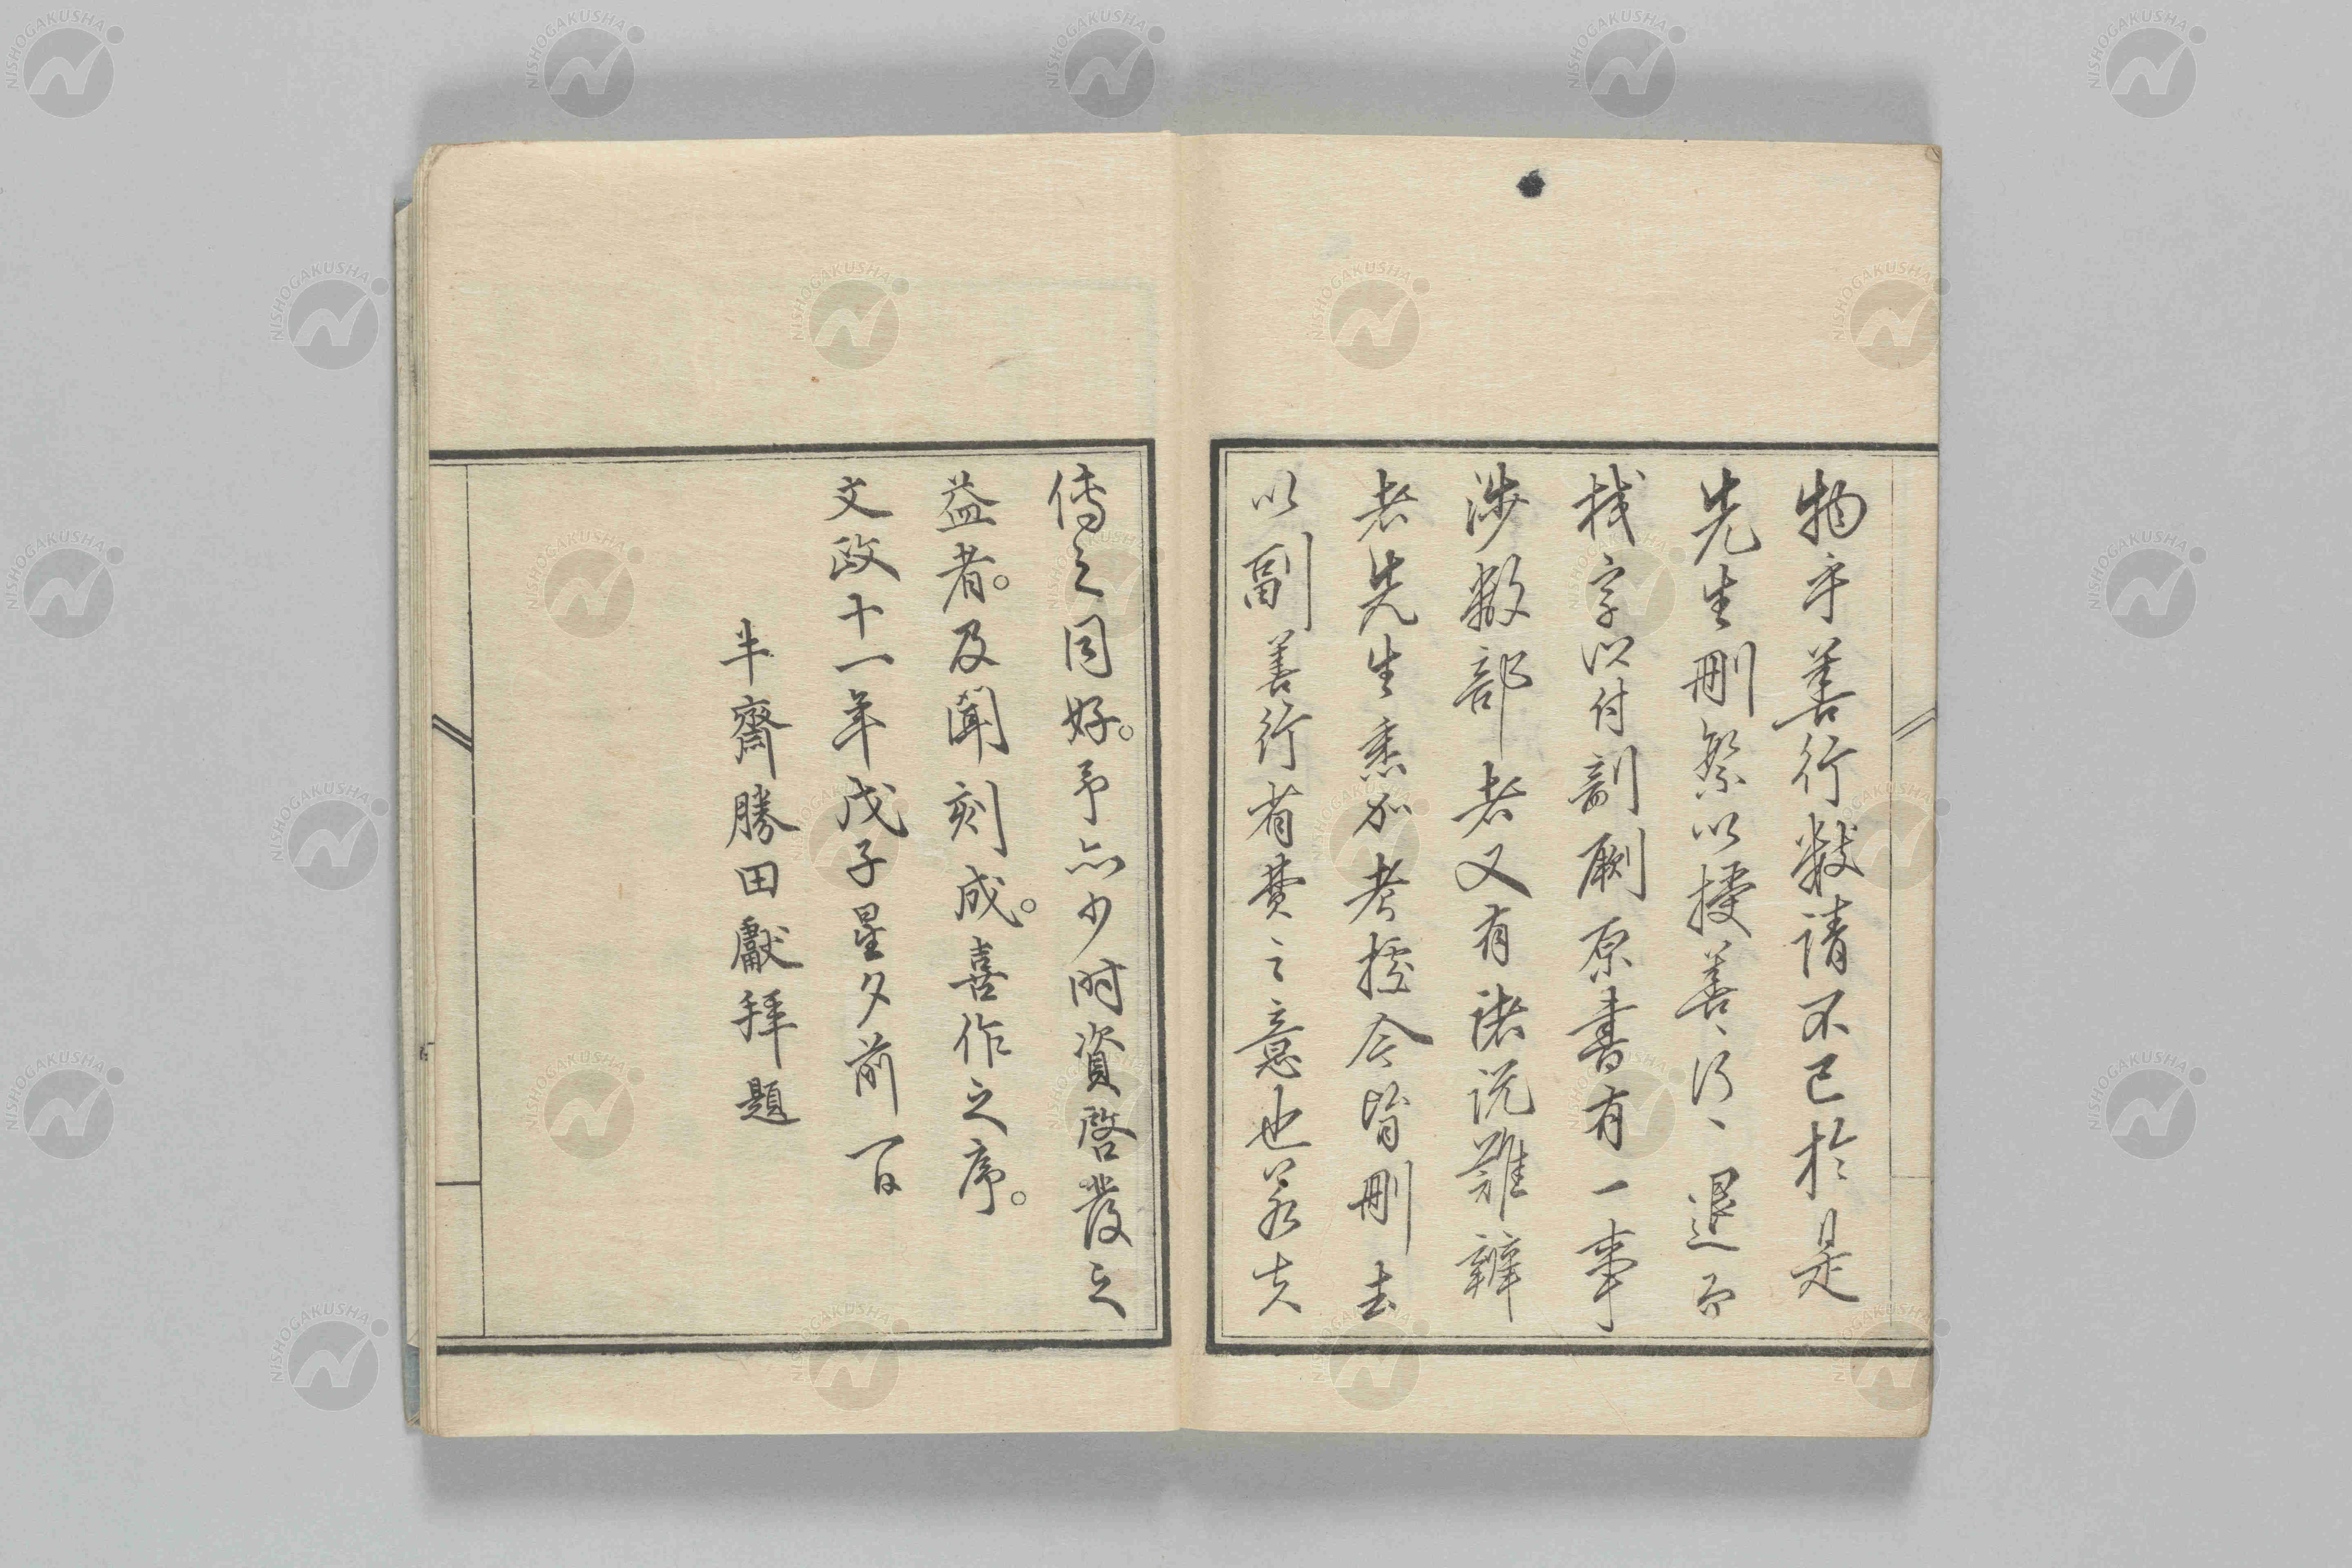 物乎善行數請不已於是
先生刪繁以授善〻行〻退而
校字以付剞劂原書有一事
涉數部者又有諸説難辨
者先生悉加考據今皆刪去
以副善行省費之意也若夫
傳之同好。予亦少時資啓發之
益者。及聞刻成。喜作之序。
文政十一年戊子星夕前一日
半齋勝田獻拜題
NISHOGAKUSHA